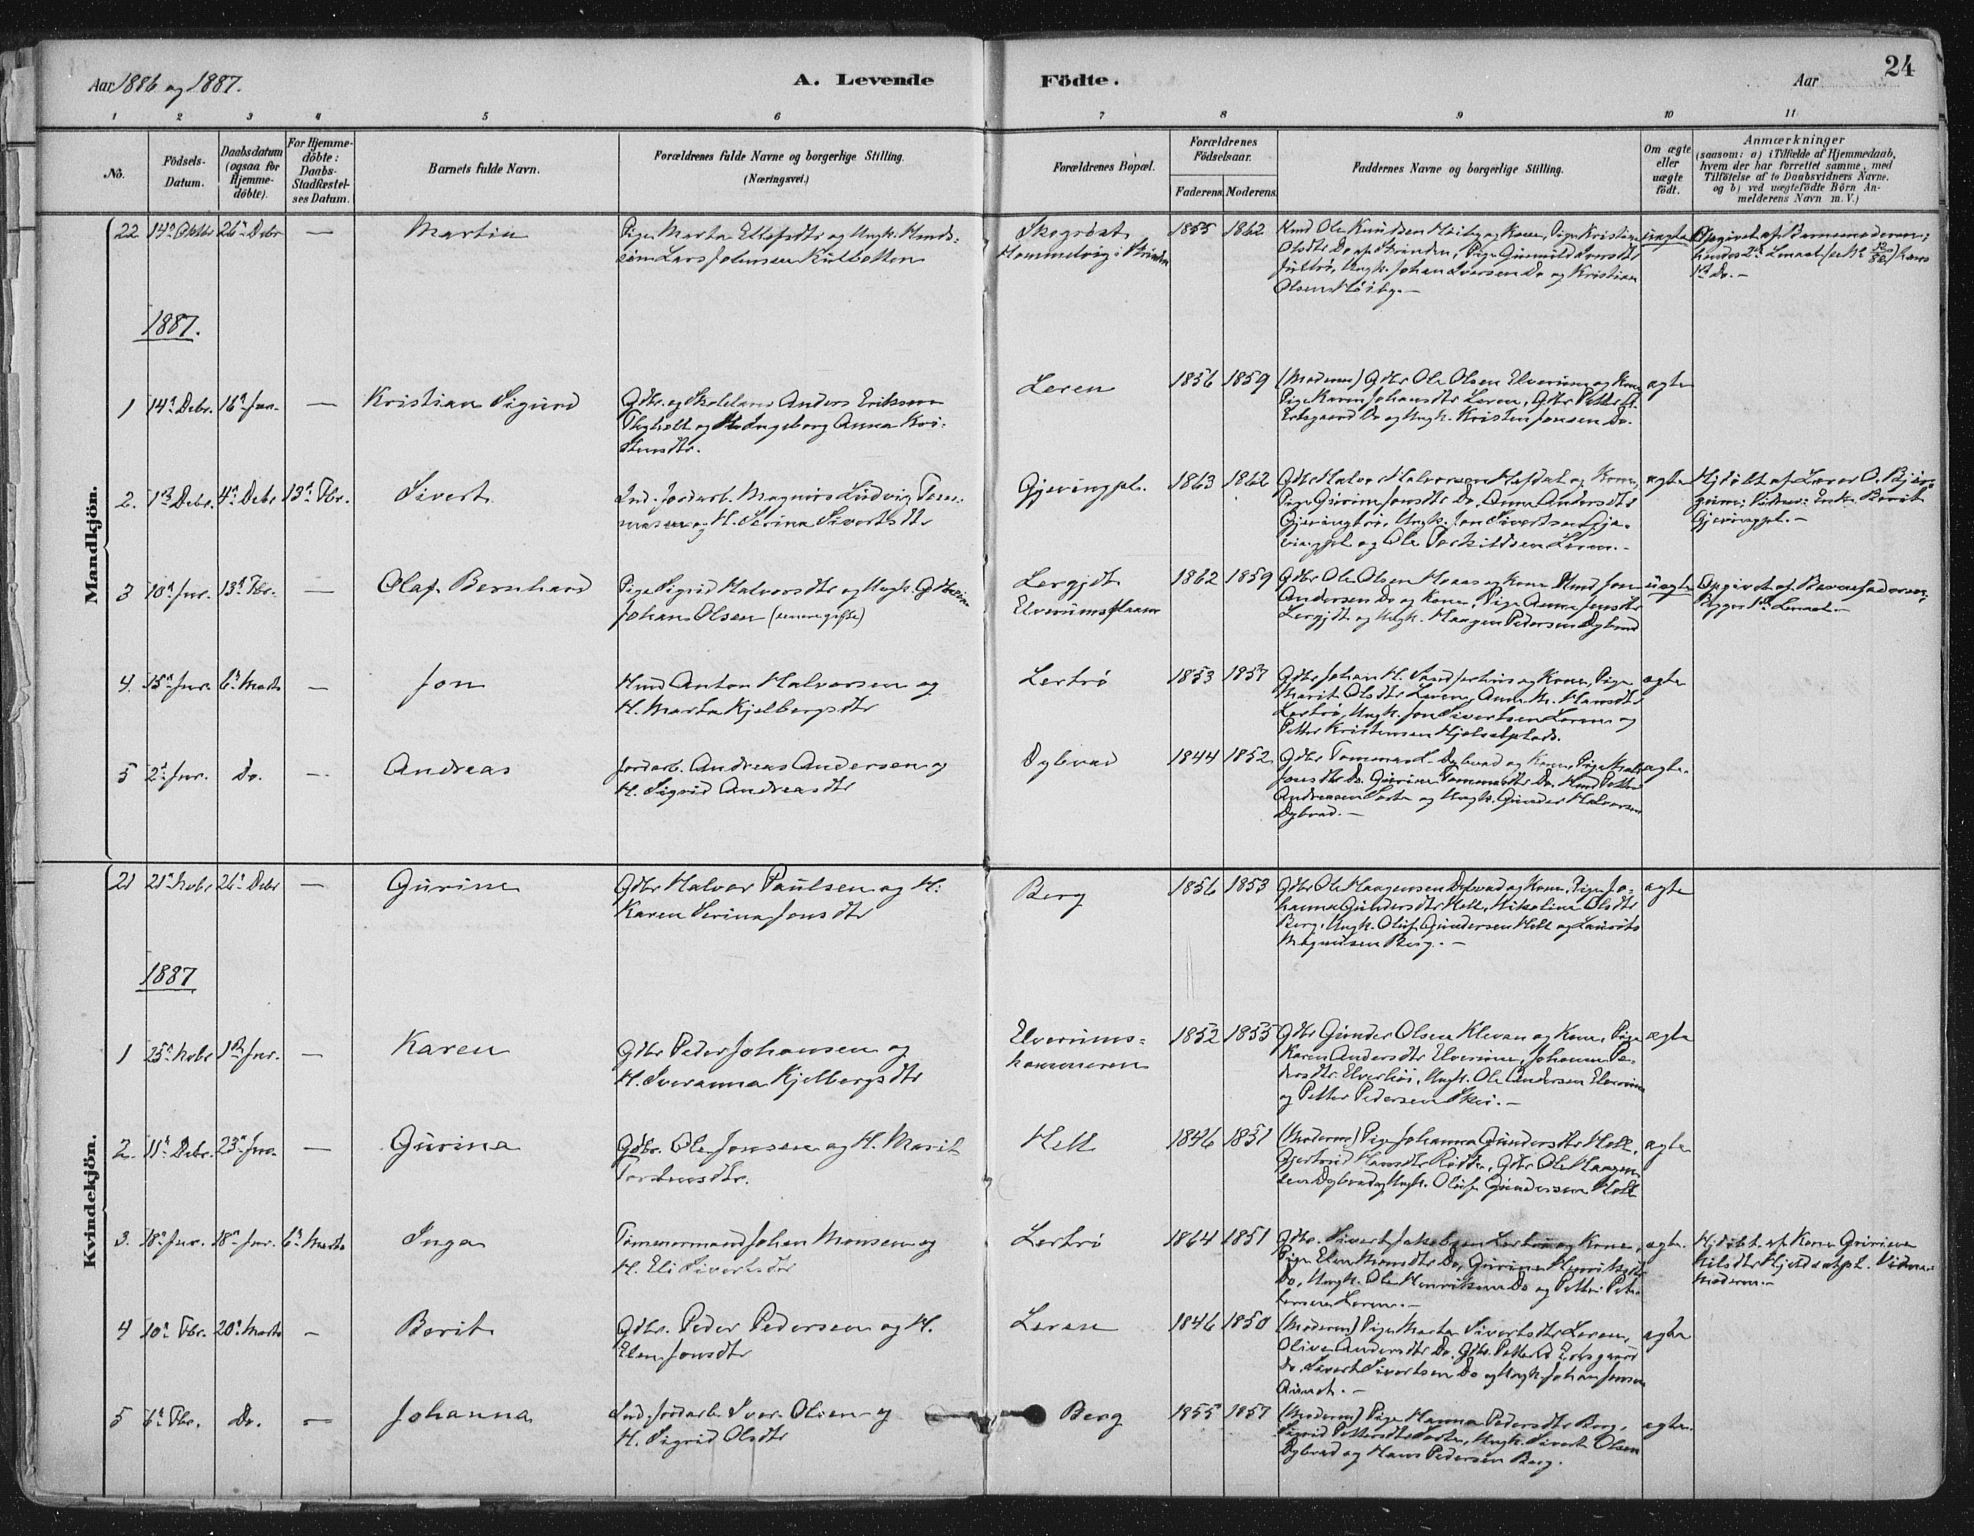 Aar 1886 og 1887.
A. Levende Födte.
Aar
24
1 2 3 4 5 6 7 8 9 10 11
No.
Födsels-Datum.
Daabsdatum (ogsaa for Hjemmedöbte).
For Hjemmedöbte: Daabs-Stadfæstelses Datum.
Barnets fulde Navn.
Forældrenes fulde Navne og borgerlige Stilling. (Næringsvei.)
Forældrenes Bopæl.
Forældrenes Födselsaar.
Faderens. Moderens.
Faddernes Navne og borgerlige Stilling.
Om ægte eller uægte födt.
Anmærkninger
(saasom: a) i Tilfælde af Hjemmedaab, hvem der har forrettet samme, med Tilföielse af to Daabsvidners Navne. og b) ved uægtefödte Börn Anmelderens Navn m. V.)
Mandkjön.
22 14de Oktbr 26de Debr — Martin
Pige Marta Ellefsdtr og Ungk. Huds-
søn Lars Johnsen Kulbotten
Hommelvig i Strinden
1855 1862
Hmd Ole Knudsen Høiby og Kone, Pige Kristine
Olsdtr Do af Strinden, Pige Gunnild Iversdtr
Ungk. Johan Iversen Do og Kristian
Olsen Høiby. —
uægte
Opgivet af Barnemoderen;
1887.
1 14de Debr. 16de Jnr. — Kristian Sigurd
Gdbr. og Skolelærer Anders Eriksen
Flyholt og H. Ingeborg Anna Kri-
stensdtr.
Leren 1856 1859
(Moderen) Gdbr Ole Olsen Elverum og Kone
Pige Karen Johansdtr Leren, Gdbr Petter A.
Do og Ungk. Kristen Jensen Do.
ægte
2. 1ste Debr. 4de Debr 13de Fbr. Sivert
Ind. Jordarb. Magnus Ludvig Tom-
masen og H. Serina Sivertsdtr
Gjevingpl. 1863 1862
Gdbr Halvor Halvorsen og Kone,
Pige Gurine Jonsdtr Do, Anna Andersdtr
Gjevingtrø, Ungk. Jon Sivertsen Gje-
vingpl og Ole Torkildsen Leren. —
ægte
Hjdøbt af Lærer O. Bjer-
Gjevingpl. —
3 10de Jnr. 13de Fbr. — Olaf Bernhard
Pige Sigrid Halvorsdtr og Ungk. Gdbr
Johan Olsen (senere gifte)
Lergjdt
Elverumsplaam
1862 1859
Gdbr Ole Olsen Moaas og Kone, Hmd Jon
Andersen Do og Kone, Pige Anna Jonsdtr
Lergjdt og Ungk. Haagen Pedersen Dybvad
uægte
Opgivet af Barnefaderen;
4. 15de Jnr. 6te Marts — Jon
Hmd Anton Halvorsen og
H. Marta Kjelbergsdtr
Lertrø 1853 1857
Gdbr Johan H. og Kone, Pige
Marit Olsdtr Leren, Anne M. Hansdtr
Lertrø, Ungk. Jon Sivertsen Leren og
Petter Kristensen Hjelsetplads.
ægte
5 2den Jnr. Do. — Andreas
Jordarb. Andreas Andersen og
H. Sigrid Andreasdtr
Dybvad 1844 1852
Gdbr Tommas L. Dybvad og Kone, Pige
Jonsdtr Do, Gurine Tommasdtr Do, Hmd Petter
Andreasen og Ungk. Gunder Halvorsen
Dybvad. —
ægte.
Kvindekjön.
21 21de Nobr 26de Debr — Gurine
Gdbr Halvor Paulsen og H.
Karen Serina Jonsdtr
Berg 1856 1853
Gdbr Ole Haagensen Dybvad og Kone, Pige Jo-
hanna Gundersdtr Hell, Nikolina Olsdtr
Berg, Ungk. Oluf Gundersen Hell og Laurits
Magnusen Berg. —
ægte
1887
1 25de Nobr 1ste Jnr. — Karen
Gdbr Peder Johansen og
H. Iveranna Kjelbergsdtr
Elverums-
hammeren
1852 1855
Gdbr Gunder Olsen Klevan og Kone, Pige
Karen Andersdtr Elverum, Johanna Pe-
dersdtr Elverhøi, Ungk. Ole Andersen Elverum
og Petter Pedersen Skei. —
ægte
2. 11te Debr. 23de Jnr. — Gurina
Gdbr. Ole Jonsen og H. Marit
Torstensdtr.
Hell 1846 1851
(Moderen) Pige Johanna Gundersdtr Hell,
Gjertrud Hansdtr, Gdbr Ole Haagen-
sen Dybvad og Ungk. Oluf Gundersen Hell
ægte
3. 18de Jnr. 18de Jnr. 6te Marts Inga
Tømmermand Johan Monsen og
H. Eli Sivertsdtr
Lertrø 1864 1851
Gdbr. Sivert Jakobsen Lertrø og Kone,
Pige Elen Monsdtr Do, Gurine Henriksdtr
Do, Ungk. Ole Henriksen Do og Petter Pet-
tersen Leren. —
ægte.
Hjdøbt af Kone Gurine
Nilsdtr Hjelsetpl. Vidne:
Moderen. —
4 10de Fbr. 20de Marts — Berit
Gdbr. Peder Pedersen og H.
Elen Jonsdtr
Leren 1846 1850
(Moderen) Pige Marta Sivertsdtr Leren,
Olive Andersdtr Do. Gdbr. Petter
Do. Sivert Sivertsen Do og Ungk. Johan Jonsen
ægte
5 6te Fbr. Do. — Johanna
Ind. Jordarb. Iver Olsen og
H. Sigrid Olsdtr
Berg 1855 1857
(Moderen) Pige Hanna Pedersdtr Berg,
Sigrid Pettersdtr, Ungk. Sivert Olsen
Dybvad og Hans Pedersen Berg.
ægte.